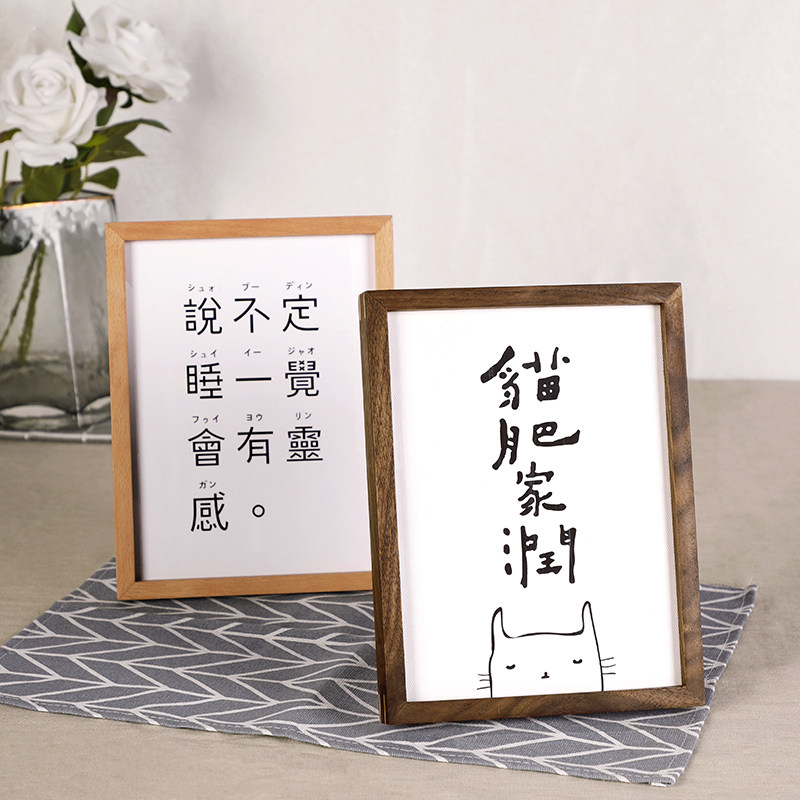 シュォ ブー ディン
說不定
シュイ イー ジャオ
睡一覺
フゥイ ヨウ リン
會有靈
ガン
感。
貓肥家潤